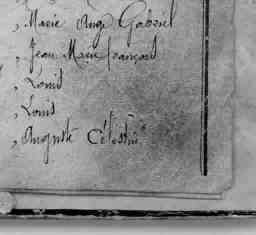 , Marie Ange Gabriel
, Jean Marie françois
, Louis
, Louis
, Auguste Célestin